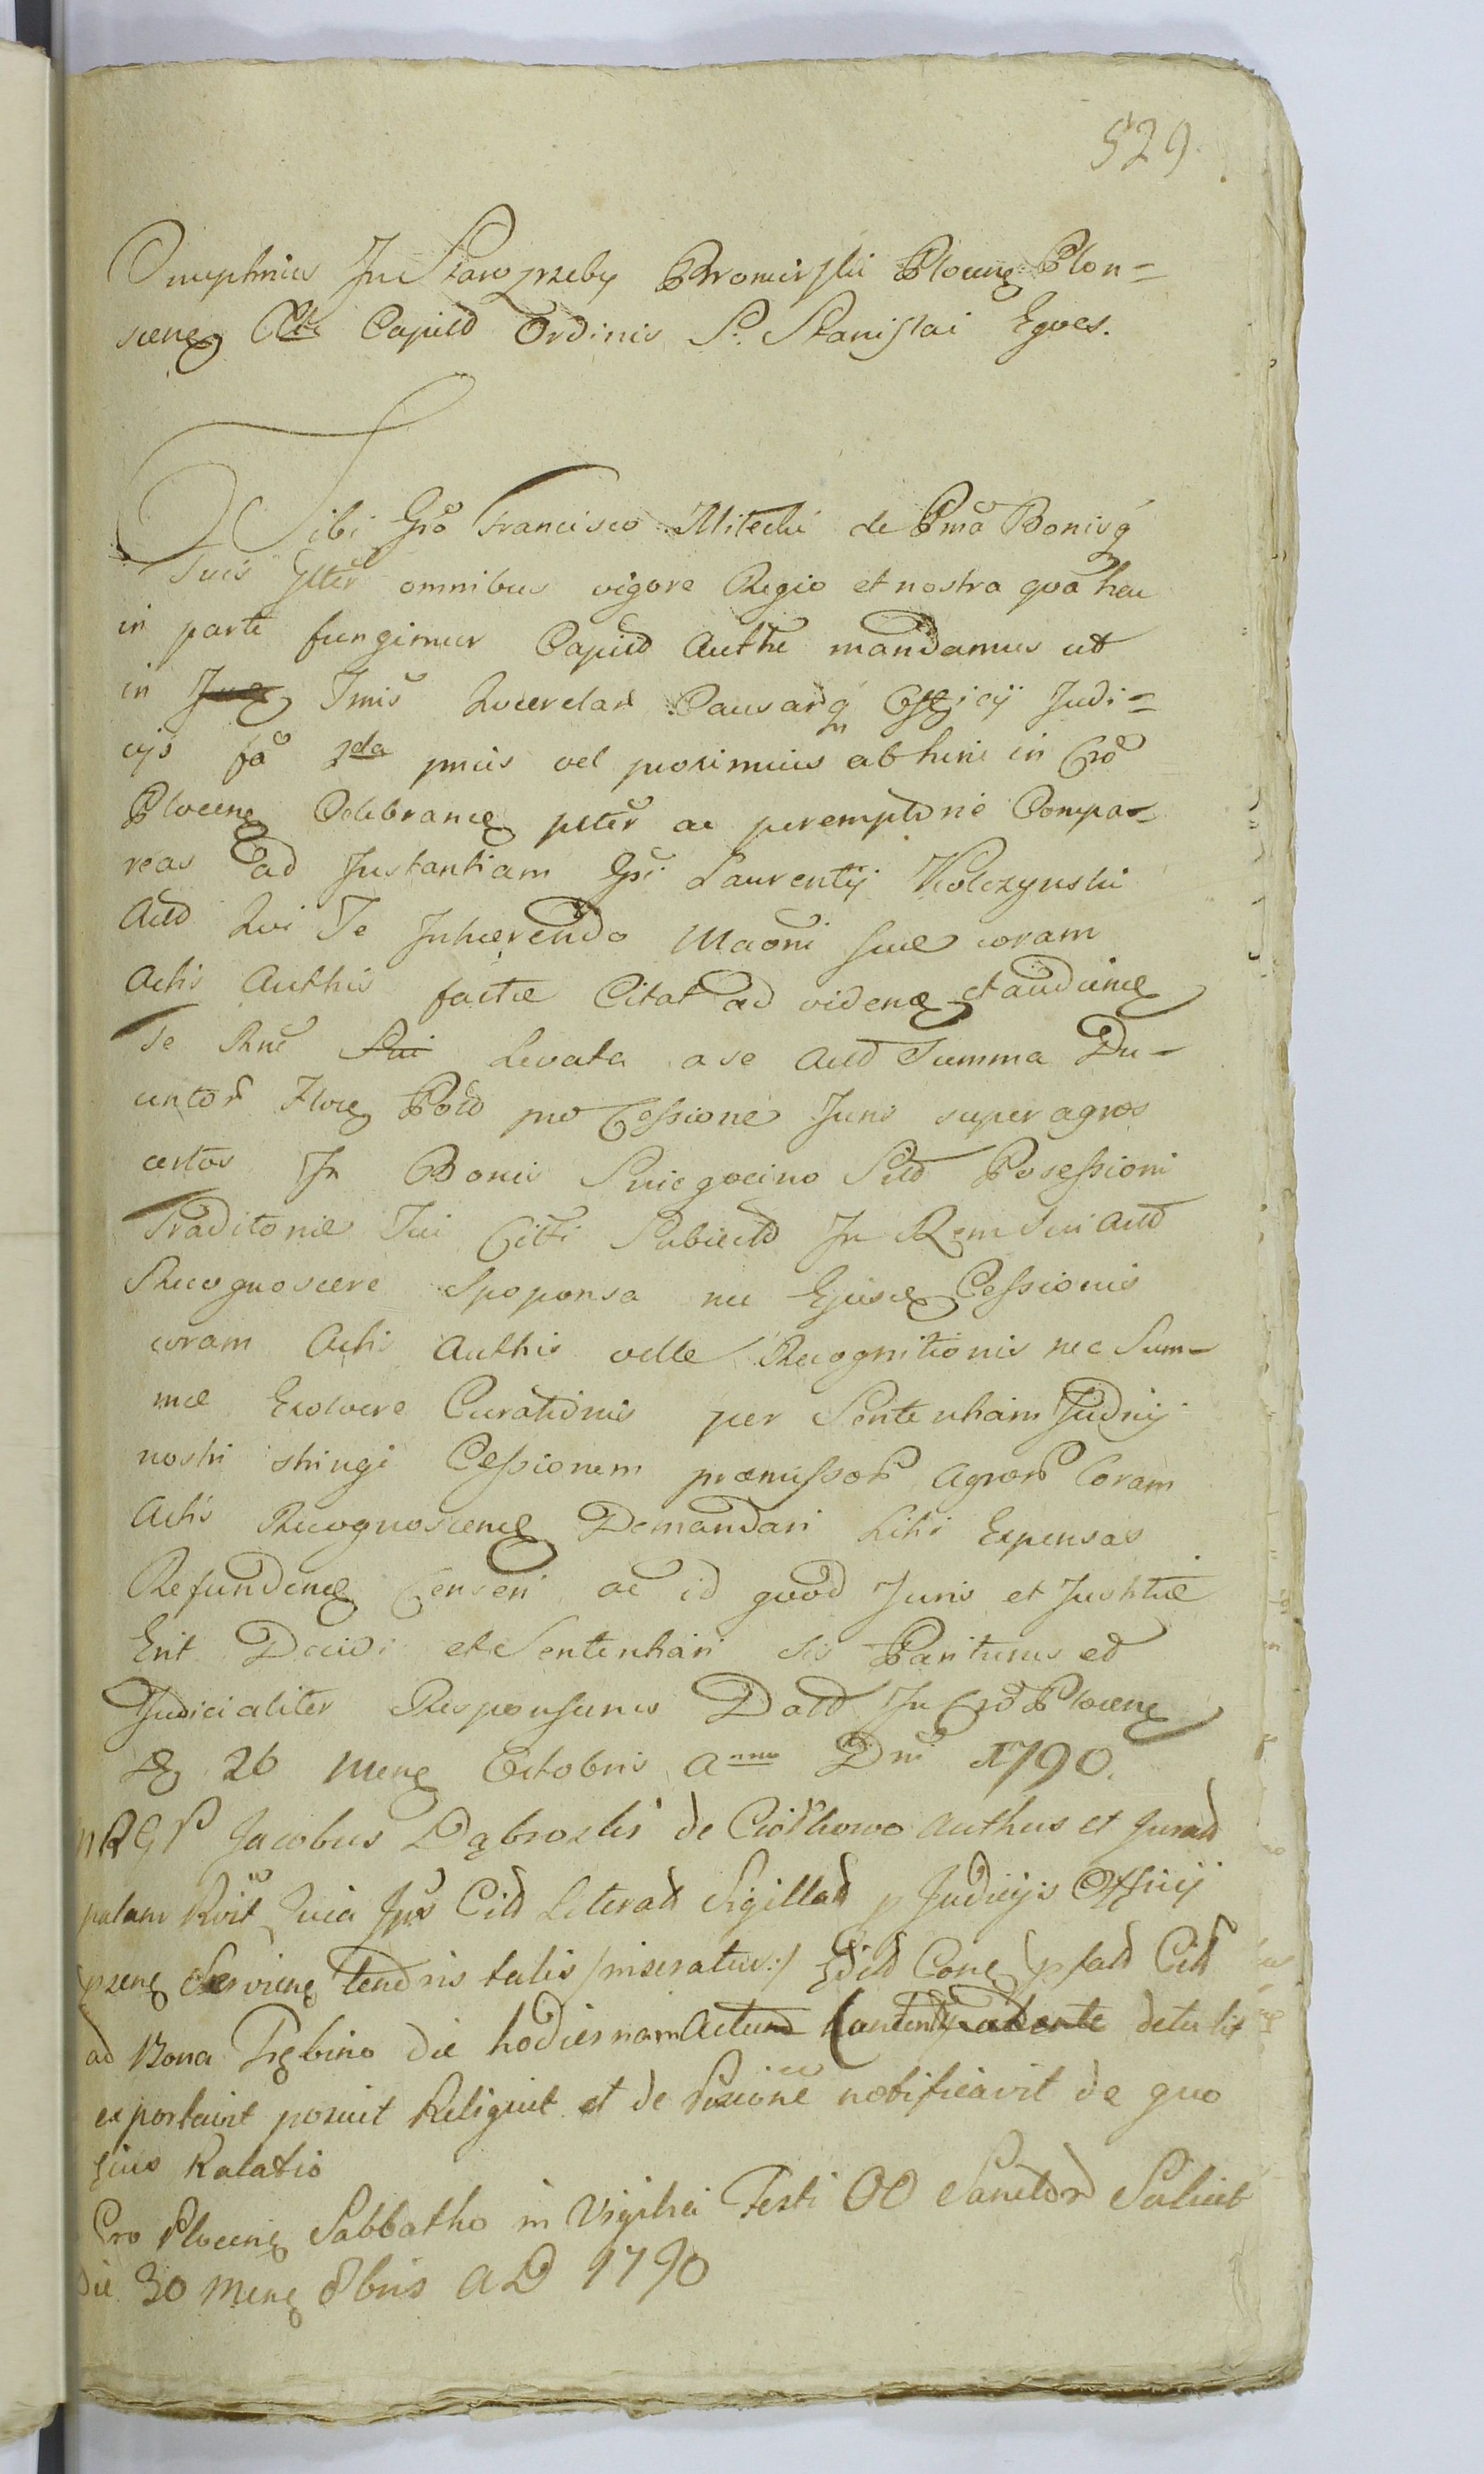 529.
Onuphrius In Starozreby Bromirski Plocens Plon=
scens Capits Ordinis S. Stanislai Eques.
Tibi Gro Francisco Miteckі de Pma Bonisq
Tuis gltēr omnibus vigore Regio et nostra qva hac
in parte fungimur Capīts Authe mandamus ut
in Tmis Querelar Causarq Officij Judi=
cijs fā 2da pmis vel proximius abhinc in Cro
Plocens Celebrand pltēr ac peremptorie Compa=
reas ad Instantiam Gsi Laurentij Kolczynski
Actd Qui Te Inhærendo Maōni suæ coram
Actis Authis factæ Citat ad vidend et audiend
Te Rnē Levata a se Actd Summa Du=
centor Flor Pold pro Cessione Juris super agros
certos In Bonis Sniegocino Sitd Posessioni
Traditoriæ Tui Citti Subiectd In Rem Sui Actd
Recognoscere Spoponsa nec Ejusd Cessionis
coram Actis Authis velle Recognitionis nec Sum=
mæ Exolvere Curationis per Sententiam Judicij
nostri stringi Cessionem præmissor Agror Coram
Actis Recognoscend Demandari Litis Expensas
Refundend Censeri ac id quod Juris et Justitiæ
Erit Decidi et Sententiari Sis Pariturus et
Judicialiter Responsurus Datt In Cro Plocens
D 26 Mens Octobris Anno Dni 1790.
NRGP Jacobus Dąbrozkis de Ciółkowo Authus et Jurad
palam Rvit Quia Ips Citt Literatt Sigillatt p Judicijs Officij
psens Serviens tenoris talis /inseratur:/ Cons
ad Bona Trębino die hodierna detulit
exportavit posuit Reliquit et de Posiōne notificavit de quo
Ejus Relatio
Cro Plocens Sabbatho in Vigilia Festi OO Sanctor Scilicet
die 30 Mens 8bris AD 1790